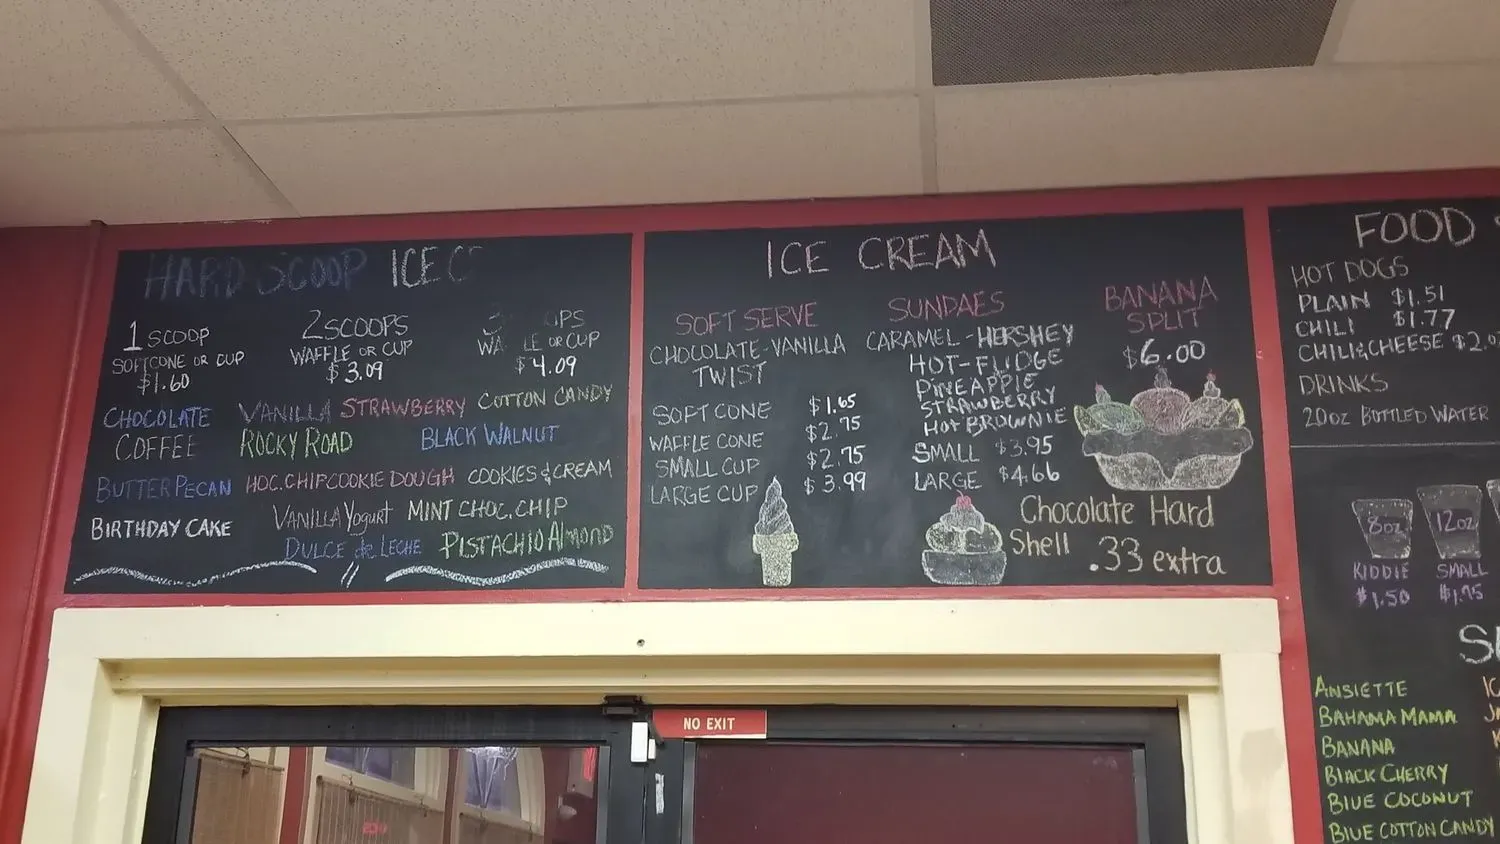 HARD SCOOP ICE C
1 SCOOP
SOFTCONE OR CUP
$1.60
2 SCOOPS
WAFFLE OR CUP
$3.09
3 OPS
WA LE OR CUP
$4.09
CHOCOLATE VANILLA STRAWBERRY COTTON CANDY
COFFEE ROCKY ROAD BLACK WALNUT
BUTTER PECAN HOC.CHIP COOKIE DOUGH COOKIES & CREAM
BIRTHDAY CAKE VANILLA Yogurt MINT CHOC. CHIP
DULCE de LECHE PISTACHIO Almond
ICE CREAM
SOFT SERVE
CHOCOLATE-VANILLA
TWIST
SOFT CONE $1.65
WAFFLE CONE $2.75
SMALL CUP $2.75
LARGE CUP $3.99
SUNDAES
CARAMEL-HERSHEY
HOT-FUDGE
PINEAPPLE
STRAWBERRY
HOT BROWNIE
SMALL $3.95
LARGE $4.66
BANANA
SPLIT
$6.00
Chocolate Hard
Shell .33 extra
FOOD
HOT DOGS
PLAIN $1.51
CHILI $1.77
CHILI&CHEESE $2.0
DRINKS
20oz BOTTLED WATER
8oz 12oz
KIDDIE SMALL
$1.50 $1.75
S
ANSIETTE
BAHAMA MAMA
BANANA
BLACK CHERRY
BLUE COCONUT
BLUE COTTON CANDY
NO EXIT